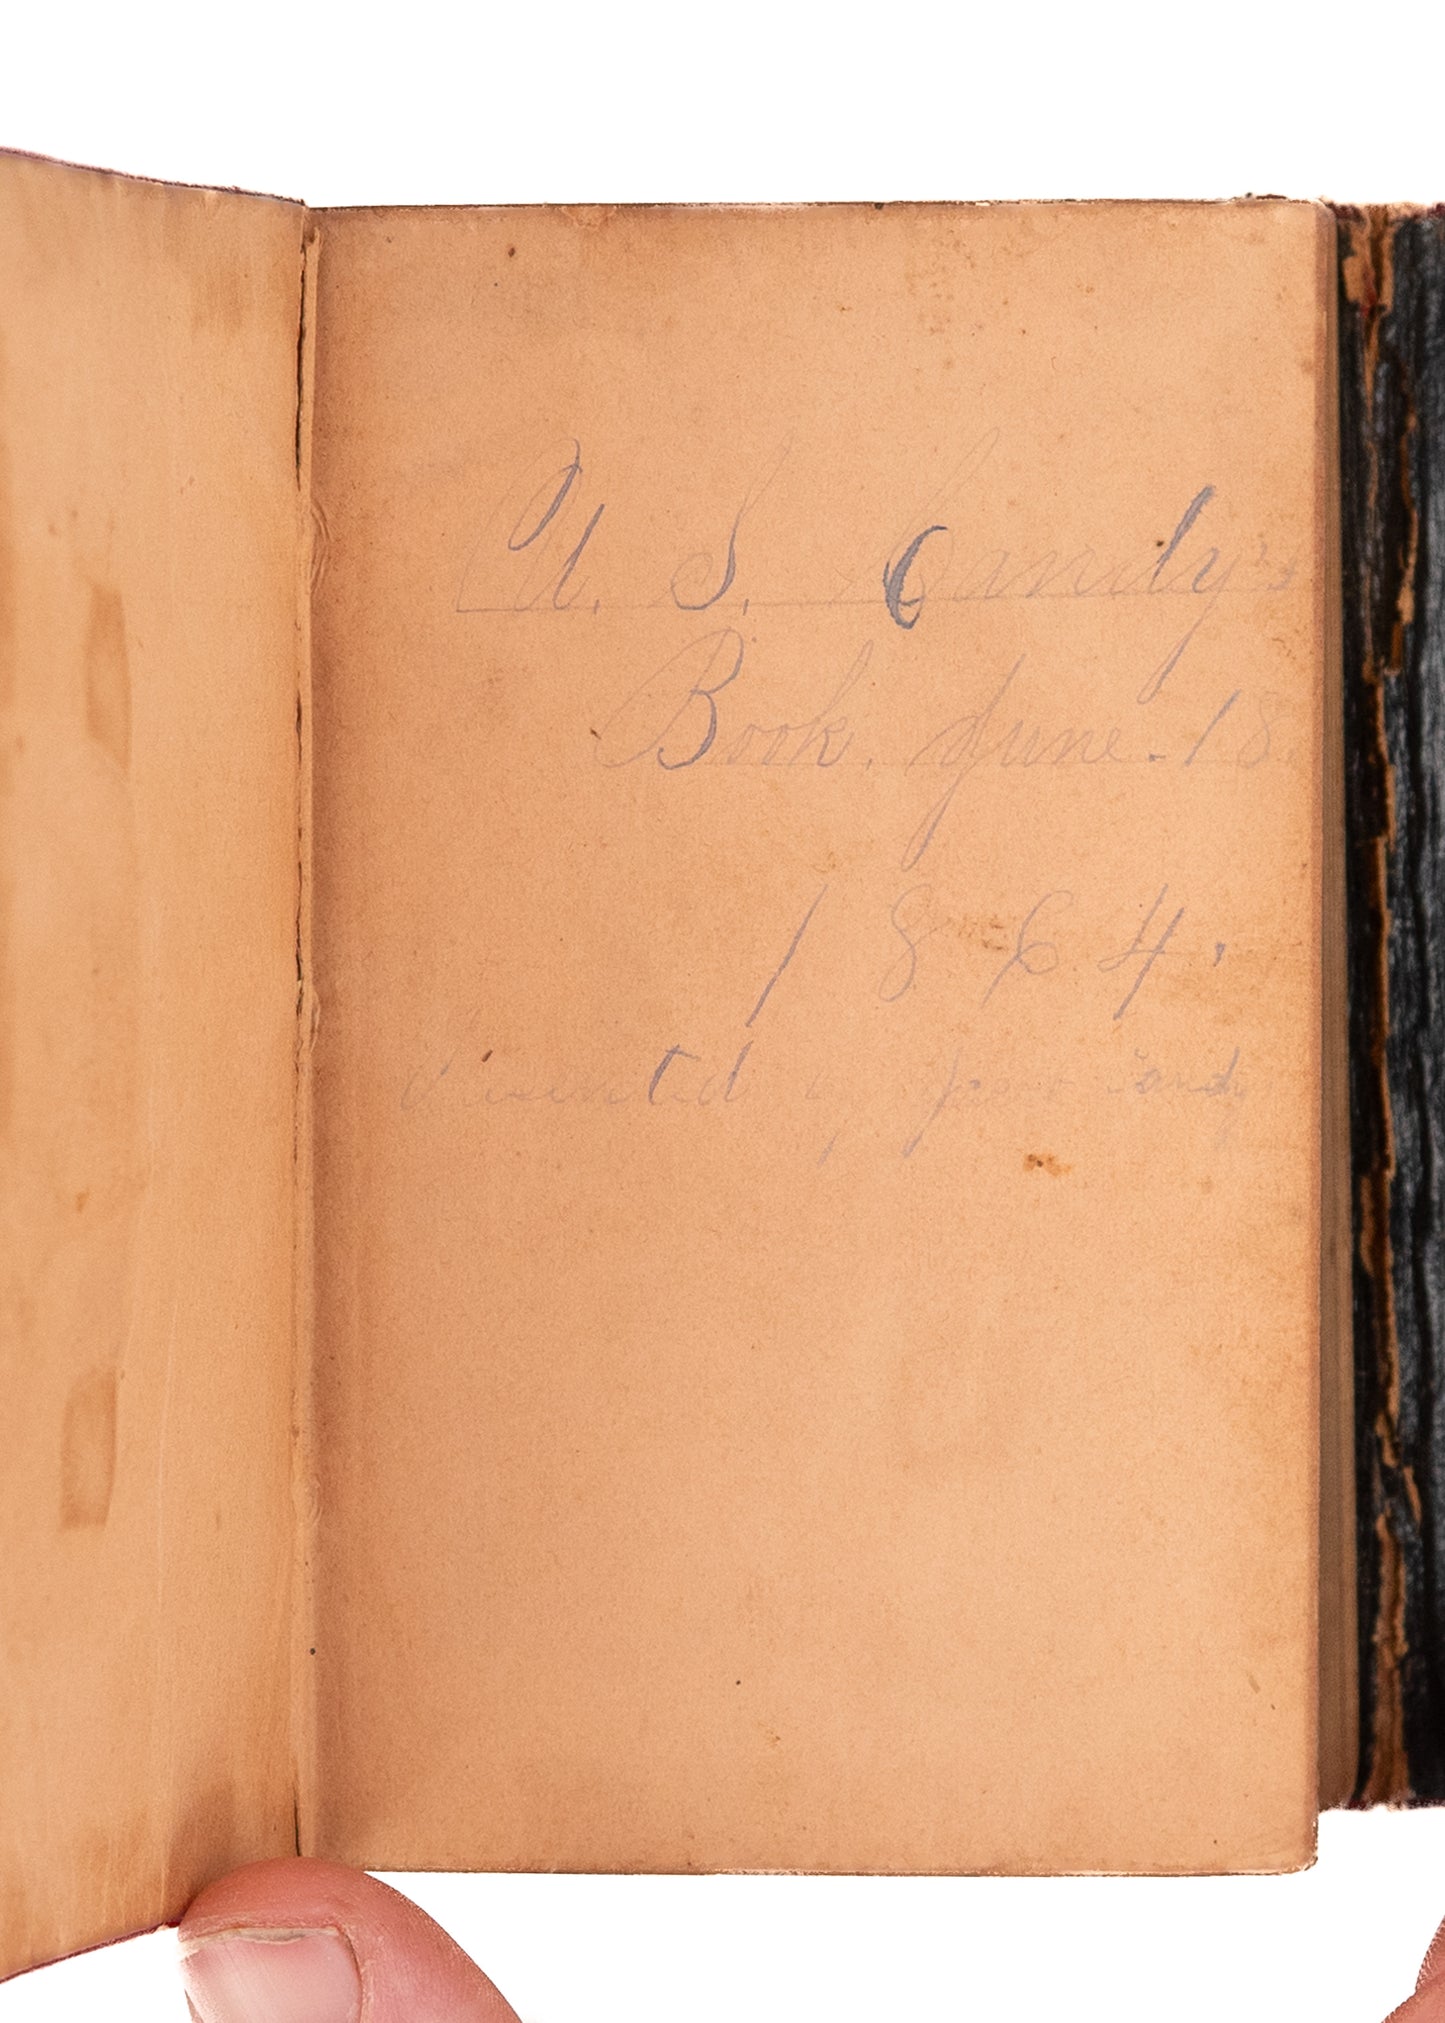 U. S. Candy's
Book. June - 18
1864.
Presented by Candy